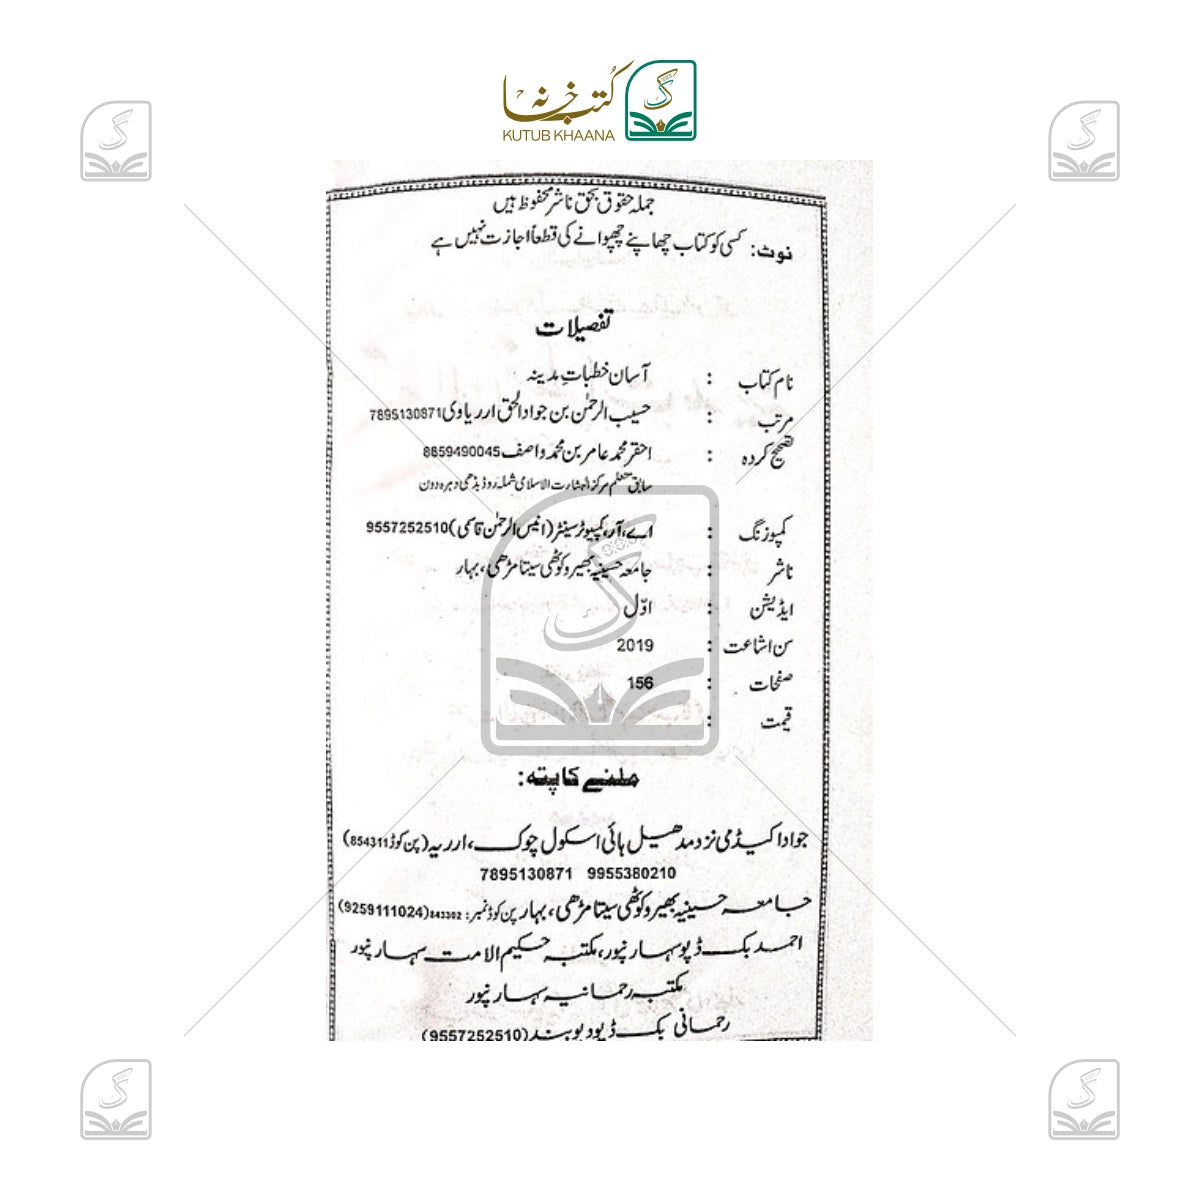 کتب خانہ
KUTUB KHAANA
جملہ حقوق بحق ناشر محفوظ ہیں
نوٹ: کسی کو کتاب چھاپنے چھپوانے کی قطعاً اجازت نہیں ہے
تفصیلات
نام کتاب : آسان خطباتِ مدینہ
مرتب : حسیب الرحمٰن بن جواد الحق ارریاوی 7895130871
تصحیح کردہ : احقر محمد عامر بن محمد واصف 8859490045
سابق معلم مرکز الاسلامی شملہ روڈ بڈھی دہرہ دون
کمپوزنگ : اے، آر، کمپیوٹر سینٹر (انیس الرحمٰن قاسمی) 9557252510
ناشر : جامعہ حسینیہ بھیروکوٹھی سیتامڑھی، بہار
ایڈیشن : اوّل
سن اشاعت : 2019
صفحات : 156
قیمت :
ملنے کا پتہ:
جواد اکیڈمی نزد مدھیل ہائی اسکول چوک، ارریہ (پن کوڈ 854311)
7895130871 9955380210
جامعہ حسینیہ بھیروکوٹھی سیتامڑھی، بہار پن کوڈ نمبر: 843302 (9259111024)
احمد بک ڈپو سہارنپور، مکتبہ حکیم الامت سہارنپور
مکتبہ رحمانیہ سہارنپور
رحمانی بک ڈپو دیوبند (9557252510)